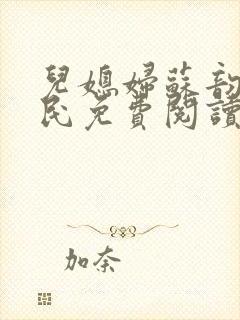 兒媳婦蘇韵
民免費閱讀
加奈